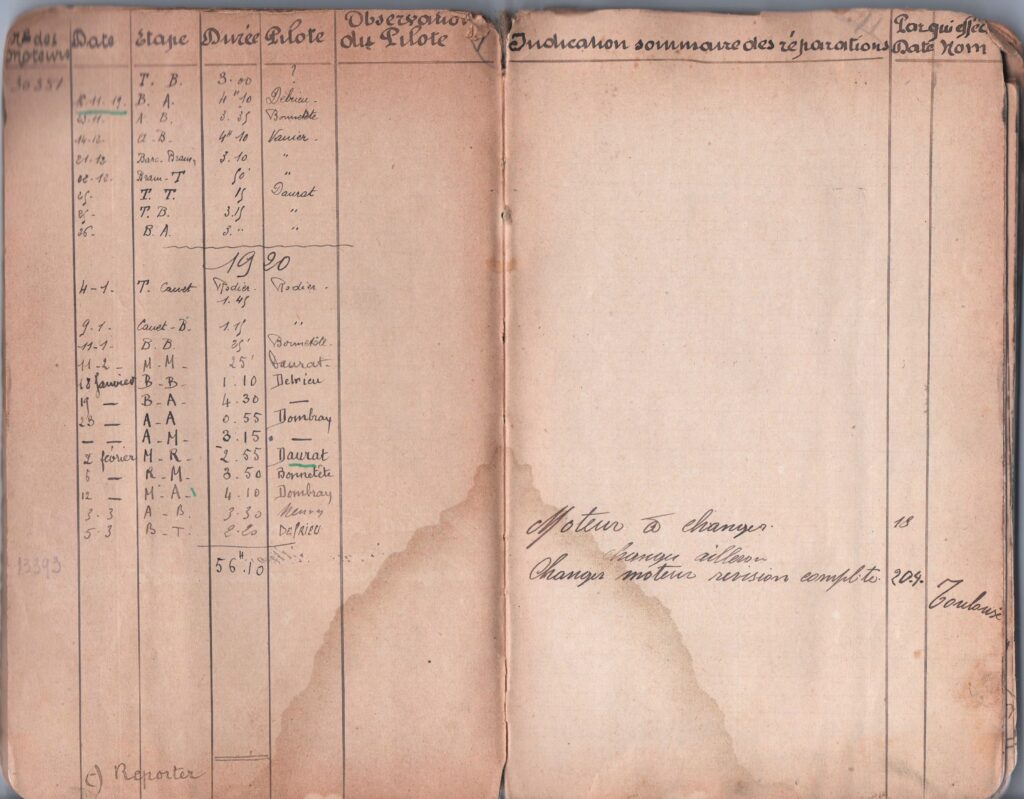 Nos des Moteurs Date Etape Durée Pilote Observation du Pilote
30351 T. B. 3.00 ?
18.11.19. B. A. 4H10 Délrieu.
23.11. A. B. 3.35 Bonnetête
14-12. A. B. 4H10 Vanier.
21.12 Barc. Bram. 3.10 "
Bram. T 50' "
25. T. T. 15 Daurat
25. T. B. 3.15 "
26. B. A. 3." "
1920
4-1. T. Canet Rodier. Rodier.
1.45
9.1. Canet-B. 1.15 "
11-1. B. B. 25' Bonnetête.
11-2- M-M- 25' Daurat-
18 Janvier B-B- 1.10 Delrieu
19 — B-A- 4.30 —
23 — A-A 0.55 Dombray
— — A-M- 3.15 —
2 février M-R- 2.55 Daurat
5 — R-M- 3.50 Bonnetête
12 — M-A- 4.10 Dombray
3.3 A-B. 3.30 Henry
5.3 B-T. 2.20 DELRIEU
13393 56H.10
(-) Reporter
Indication sommaire des réparations Par qui effec. Date Nom
Moteur à changer. 13
changer aileron
Changer moteur revision complète. 20.4. Toulouse